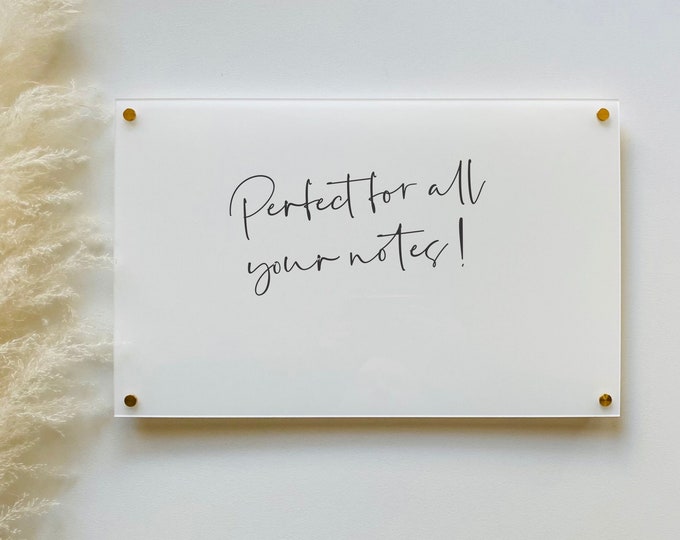 Perfect for all
your notes!